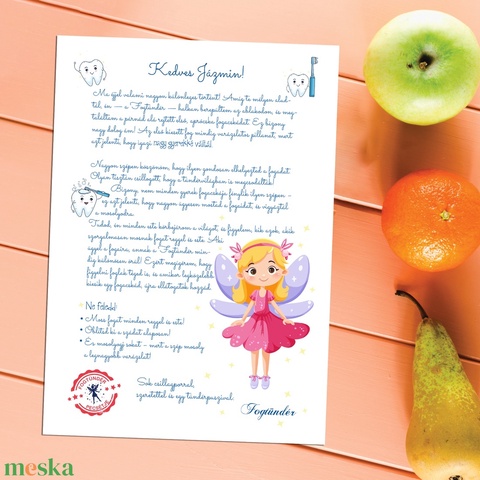 Kedves Jázmin!
Ma éjjel valami nagyon különleges történt! Amíg te mélyen alud-
tál, én — a Fogtündér — halkan berepültem az ablakodon, és meg-
találtam a párnád alá rejtett első, apróска fogacskádat. Ez bizony
nagy dolog ám! Az első kiesett fog mindig varázslatos pillanat, mert
azt jelenti, hogy igazi nagy gyerekké váltál.
Nagyon szépen köszönöm, hogy ilyen gondosan elhelyezted a fogadat.
Olyan tisztán csillogott, hogy a tündérvilágban is megcsodálták!
Bizony, nem minden gyerek fogacskája fénylik ilyen szépen –
ez azt jelenti, hogy nagyon ügyesen mostad a fogaidat, és vigyáztál
a mosolyodra.
Tudod, én minden este körbejárom a világot, és figyelem, kik azok, akik
szorgalmasan mosnak fogat reggel és este. Aki
ügyel a fogaira, annak a Fogtündér min-
dig különösen örül! Ezért megígérem, hogy
figyelni foglak téged is, és amikor legközelebb
kiesik egy fogacskád, újra ellátogatok hozzád.
Ne feledd:
• Moss fogat minden reggel és este!
• Öblítsd ki a szádat alaposan!
• És mosolyogj sokat – mert a szép mosoly
a legnagyobb varázslat!
FOGTÜNDÉR
Sok csillagporral,
szeretettel és egy tündérpuszival:
Fogtündér
meska